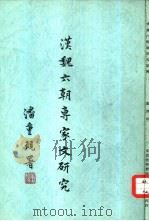 漢魏六朝專家文研究
潘重規署